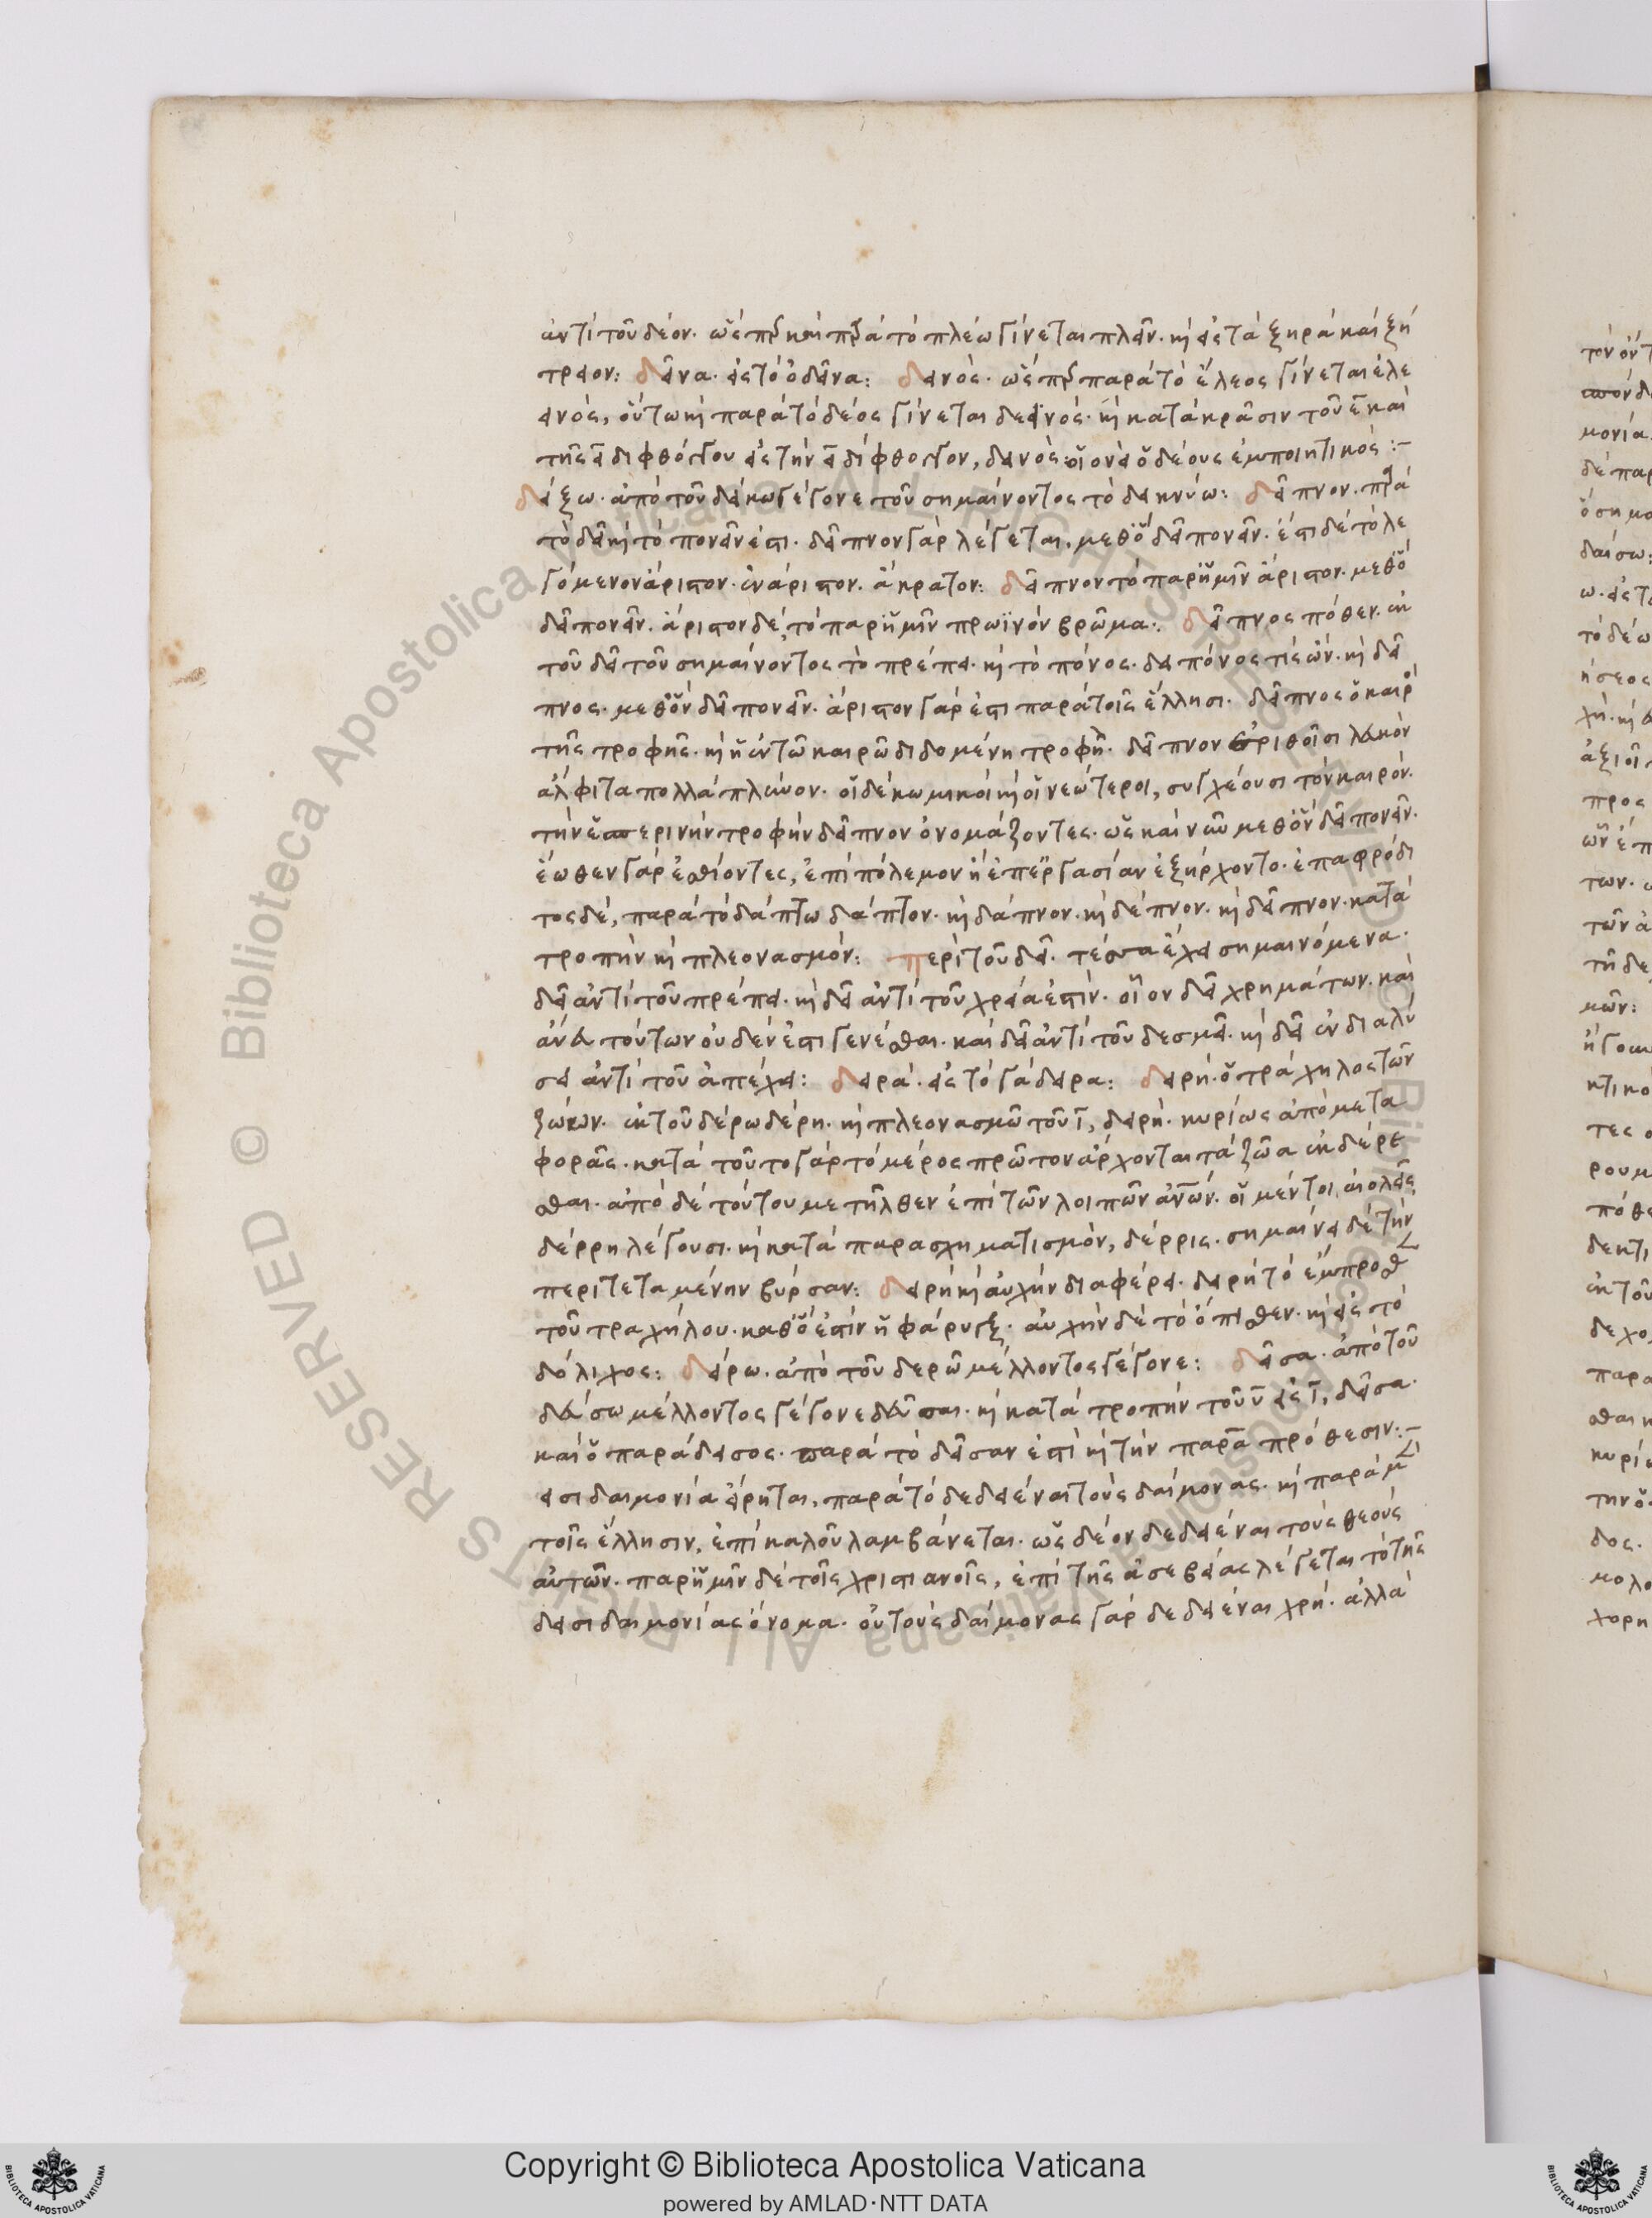 ἀντὶ τοῦ δέον. ὥσπερ καὶ παρὰ τὸ πλέω γίνεται πλεῖν. καὶ εἰς τὰ ξηρά καὶ ξη
τρειον: δεῖνα. εἰς τὸ ὁ δεῖνα: δεινός. ὥσπερ παρὰ τὸ ἔλεος γίνεται ἐλε
εινός, οὕτω καὶ παρὰ τὸ δέος γίνεται δεεινός. καὶ κατὰ κρᾶσιν τοῦ ε καὶ
τῆς ει διφθόγγου εἰς τὴν ει δίφθογγον, δεινός οἱονεὶ ὁ δέους ἐμποιητικός:-
δείξω. ἀπὸ τοῦ δείκω γέγονε τοῦ σημαίνοντος τὸ δεικνύω: δεῖπνον. παρὰ
τὸ δεῖ καὶ τὸ πονεῖν ἐστι. δεῖπνον γὰρ λέγεται, μεθ' ὃ δεῖ πονεῖν. ἔστι δὲ τὸ λε
γόμενον ἄριστον. ἐνάριστον. ἄκρατον: δεῖπνον τὸ παρ' ἡμῖν ἄριστον. μεθ' ὃ
δεῖ πονεῖν. ἄριστον δέ, τὸ παρ' ἡμῖν πρωϊνὸν βρῶμα: δεῖπνος πόθεν. ἐκ
τοῦ δεῖ τοῦ σημαίνοντος τὸ πρέπει. καὶ τὸ πόνος. δειπόνος τις ὤν. καὶ δεῖ
πνος. μεθ' ὃν δεῖ πονεῖν. ἄριστον γάρ ἐστι παρὰ τοῖς ἕλλησι. δεῖπνος ὁ καιρὸς
τῆς τροφῆς. καὶ ἡ ἐν τῷ καιρῷ διδομένη τροφή. δεῖπνον ἐρίθοισι λευκὸν
ἄλφιτα πολλὰ πάλυνον. οἱ δὲ κωμικοὶ καὶ οἱ νεώτεροι, συγχέουσι τὸν καιρόν.
τὴν ἑσπερινὴν τροφὴν δεῖπνον ὀνομάζοντες. ὡς καὶ νῦν μεθ' ὃν δεῖ πονεῖν.
ἕωθεν γὰρ ἐσθίοντες, ἐπὶ πόλεμον ἢ ἐπ' ἐργασίαν ἐξήρχοντο. ἐπαφρόδι
τος δέ, παρὰ τὸ δάπτω δάπτον. καὶ δάπνον. καὶ δέπνον. καὶ δεῖπνον. κατὰ
τροπὴν καὶ πλεονασμόν: περὶ τοῦ δεῖ. τέσσαρα ἔχει σημαινόμενα.
δεῖ ἀντὶ τοῦ πρέπει. καὶ δεῖ ἀντὶ τοῦ χρεία ἐστίν. οἷον δεῖ χρημάτων. καὶ
ἄνευ τούτων οὐδέν ἐστι γενέσθαι. καὶ δεῖ ἀντὶ τοῦ δεσμεῖ. καὶ δεῖ ἐν διαλύ
σει ἀντὶ τοῦ ἀπέχει: δειρά. εἰς τὸ γάδειρα: δειρή. ὁ τράχηλος τῶν
ζώων. ἐκ τοῦ δέρω δέρη. καὶ πλεονασμῷ τοῦ ι, δειρή. κυρίως ἀπὸ μετα
φορᾶς. κατὰ τοῦτο γὰρ τὸ μέρος πρῶτον ἄρχονται τὰ ζῶα ἐκδέρε
σθαι. ἀπὸ δὲ τούτου μετῆλθεν ἐπὶ τῶν λοιπῶν ἀνων. οἱ μέντοι αἰολεῖς
δέρρη λέγουσι. καὶ κατὰ παρασχηματισμόν, δέρρις. σημαίνει δὲ τὴν
περιτεταμένην βύρσαν: δειρὴ καὶ αὐχὴν διαφέρει. δειρὴ τὸ ἔμπροσθεν
τοῦ τραχήλου. καθ' ὅ ἐστιν ἡ φάρυγξ. αὐχὴν δὲ τὸ ὄπισθεν. καὶ εἰς τὸ
δόλιχος: δείρω. ἀπὸ τοῦ δερῶ μέλλοντος γέγονε: δεῖσα. ἀπὸ τοῦ
δεύσω μέλλοντος γέγονε δεῦσαι. καὶ κατὰ τροπὴν τοῦ υ εἰς ι, δεῖσα.
καὶ ὁ παράδεισος. παρὰ τὸ δεῖσαν ἐστὶ καὶ τὴν παρα πρόθεσιν:-
εισιδαιμονία εἴρηται, παρὰ τὸ δεδιέναι τοὺς δαίμονας. καὶ παρὰ μὲν
τοῖς ἕλλησιν, ἐπὶ καλοῦ λαμβάνεται. ὡς δέον δεδιέναι τοὺς θεοὺς
αὐτῶν. παρ' ἡμῖν δὲ τοῖς χριστιανοῖς, ἐπὶ τῆς ἀσεβείας λέγεται τὸ τῆς
δεισιδαιμονίας ὄνομα. οὐ τοὺς δαίμονας γὰρ δεδιέναι χρή. ἀλλὰ
© Biblioteca Apostolica Vaticana ALL RIGHTS RESERVED
Copyright © Biblioteca Apostolica Vaticana
powered by AMLAD·NTT DATA